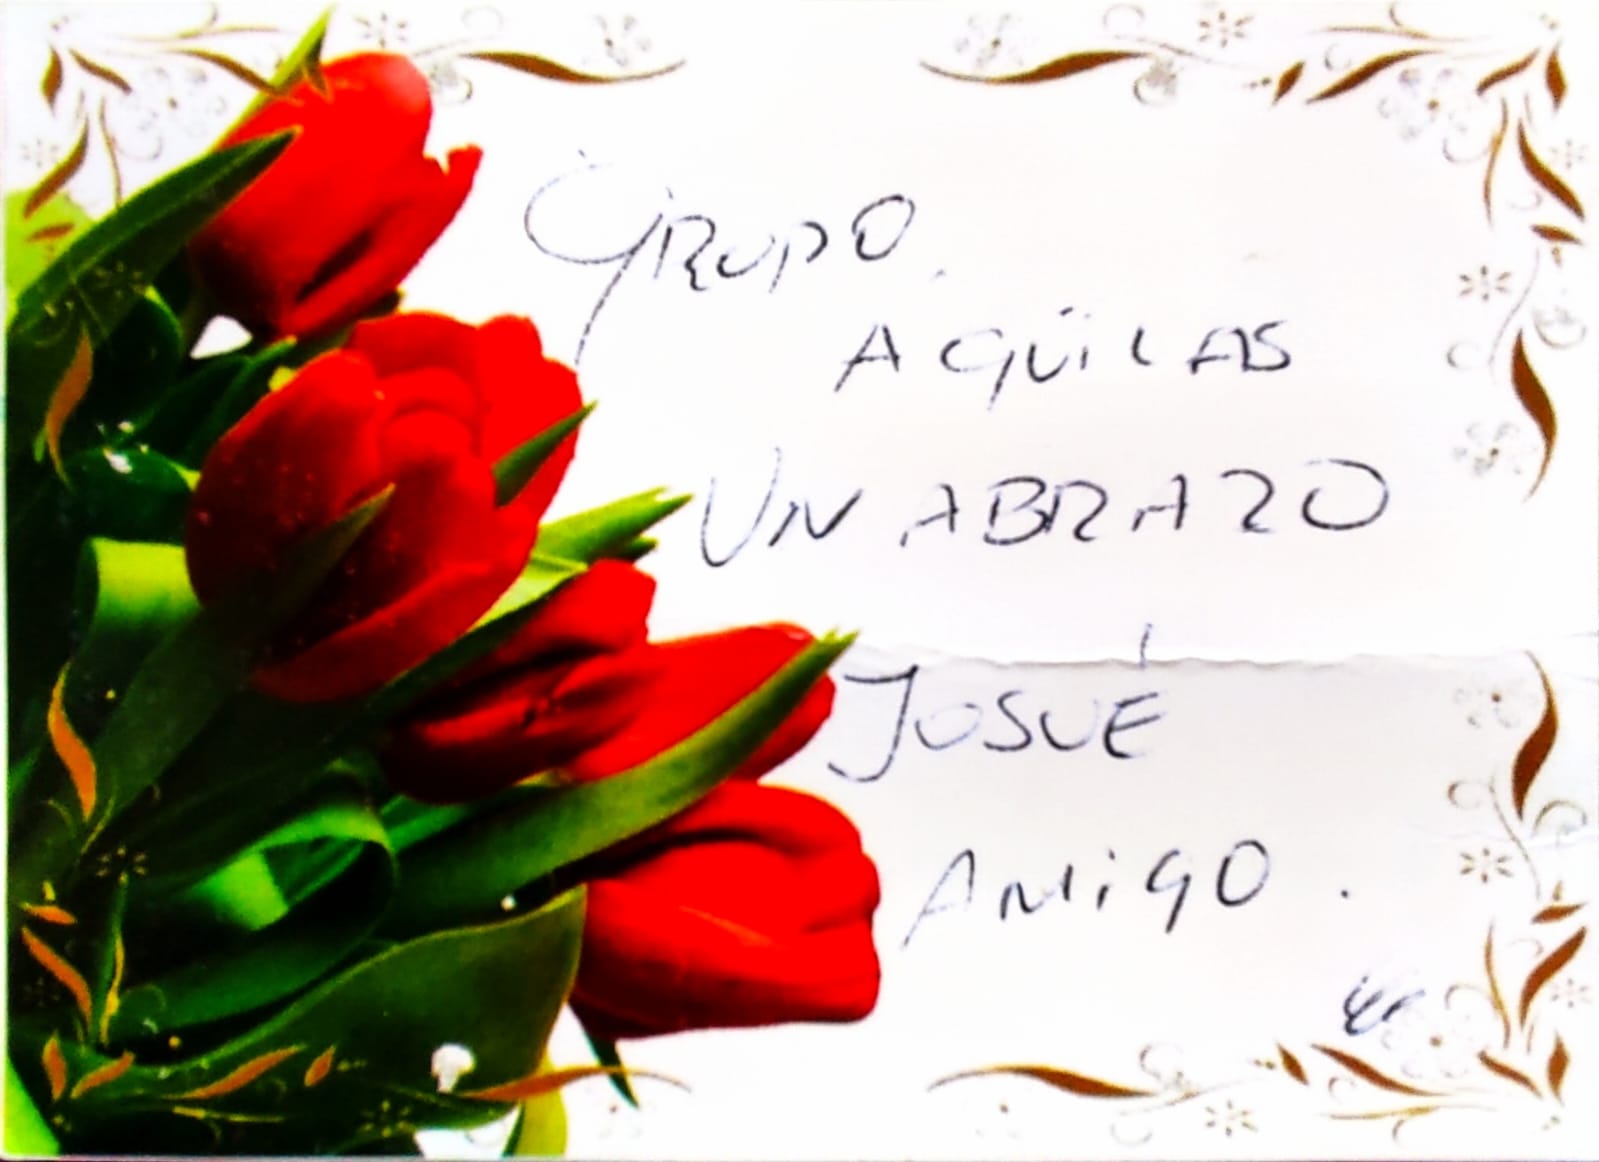 GRUPO
AGÜILAS
UN ABRAZO
JOSUÉ
AMIGO.